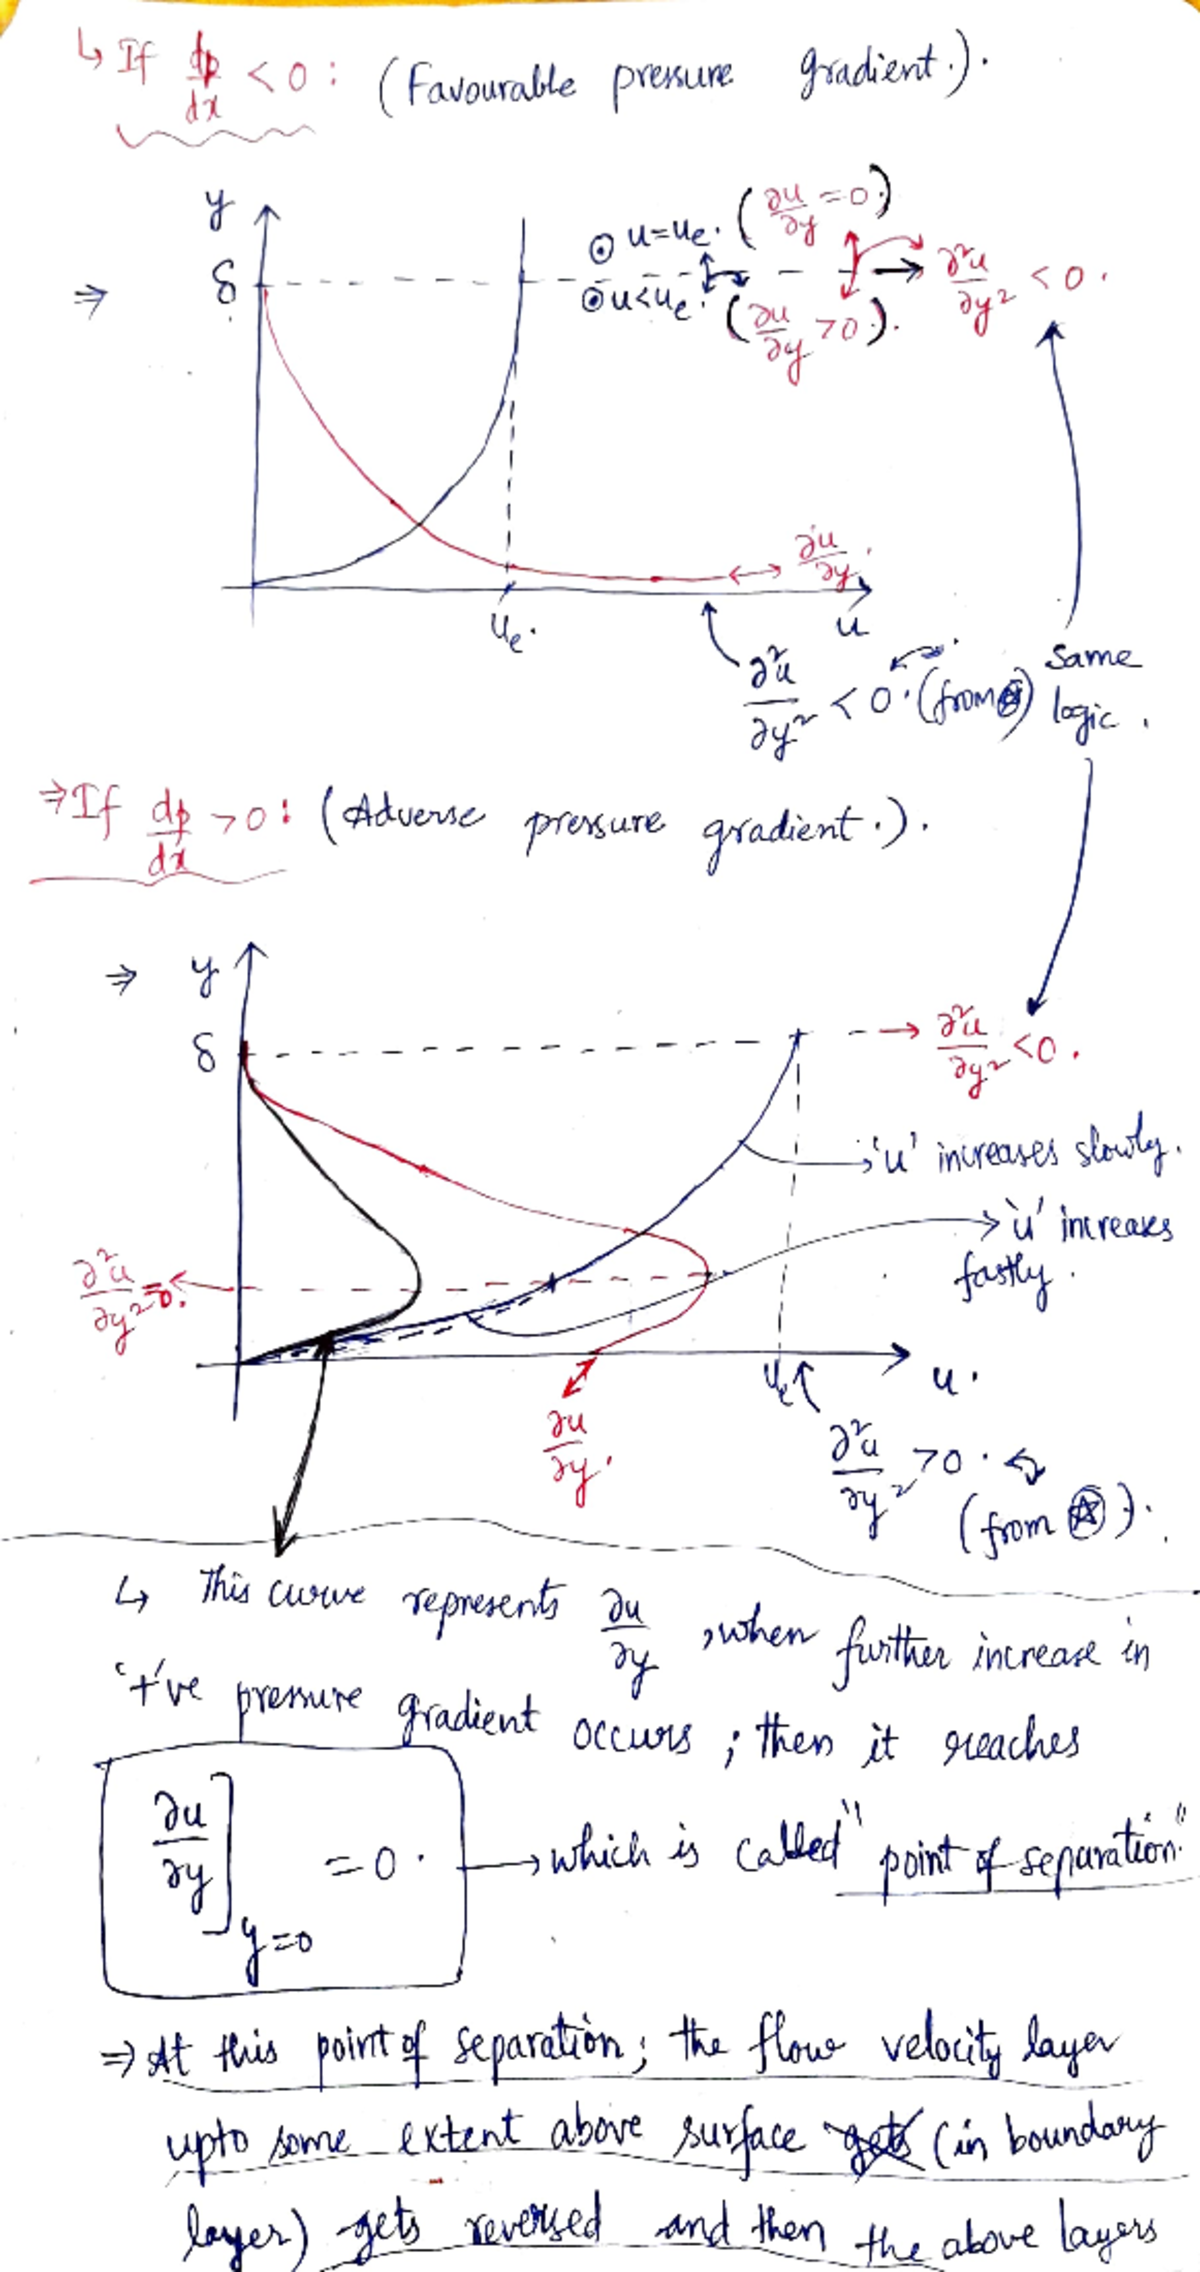 ↳ If dp/dx < 0 : (Favourable pressure gradient.).
y
⊙ u=ue. (∂u/∂y = 0.)
⇒ δ
⊙ u<ue. (∂u/∂y > 0.). → ∂²u/∂y² < 0.
↔ ∂u/∂y.
ue. u
∂²u/∂y² < 0. (from ☆) Same logic.
⇒ If dp/dx > 0 : (Adverse pressure gradient.).
⇒ y
δ → ∂²u/∂y² < 0.
→ 'u' increases slowly.
→ 'u' increases
fastly.
∂²u/∂y² = 0.
ue u.
∂u/∂y.
∂²u/∂y² > 0.
(from ☆).
↳ This curve represents ∂u/∂y , when further increase in
'+'ve pressure gradient occurs ; then it reaches
∂u/∂y]y=0 = 0. → which is called "point of separation."
⇒ At this point of separation; the flow velocity layer
upto some extent above surface gets (in boundary
layer) gets reversed and then the above layers